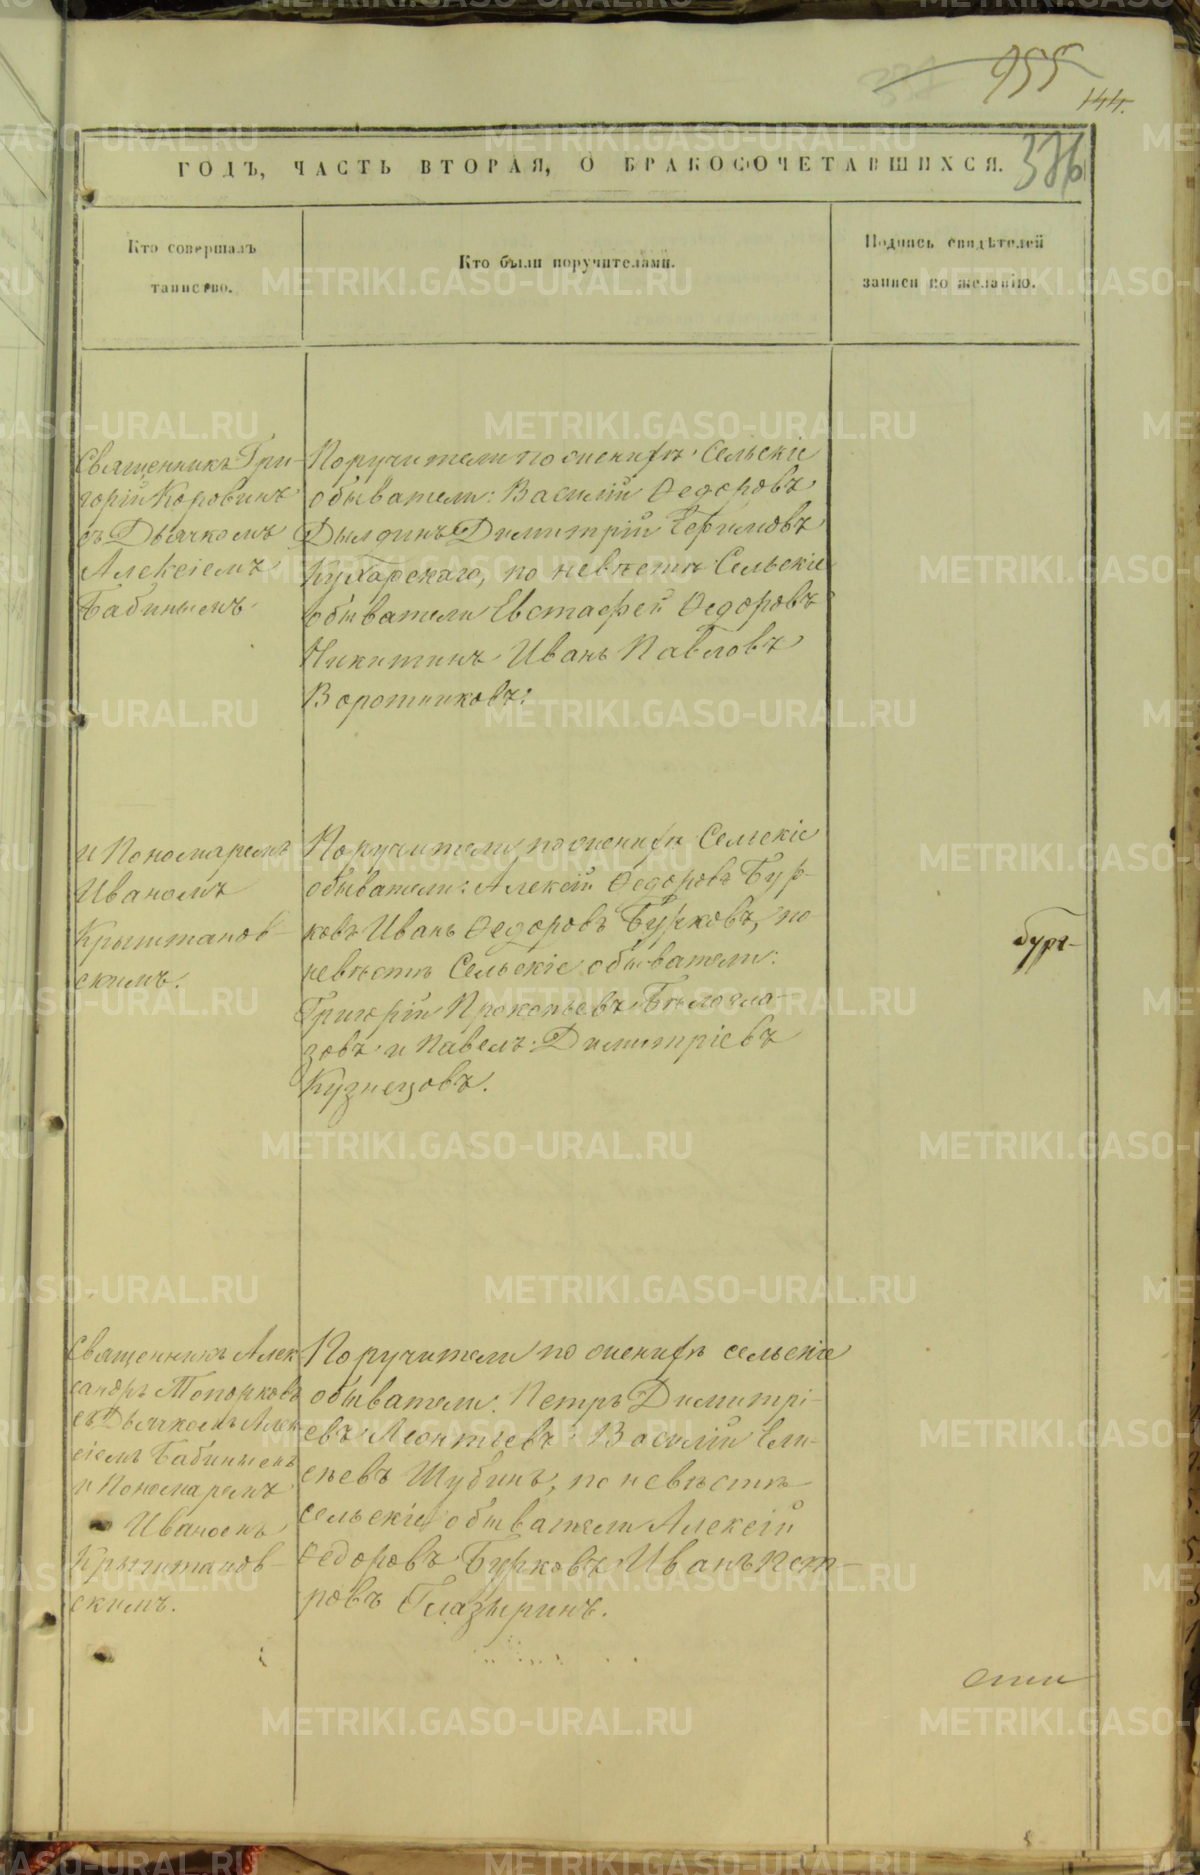 955
144.
376
ГОДЪ, ЧАСТЬ ВТОРАЯ, О БРАКОСОЧЕТАВШИХСЯ.
Кто совершалъ
таинство.
Кто были поручителями.
Подпись свидѣтелей
записи по желанію.
Священникъ Гри-
горій Коровинъ
съ Дьячкомъ
Алексіемъ
Бабинымъ
Поручители по женихѣ: Сельскіе
обыватели: Василій Ѳедоровъ
Дылдинъ Димитрій Ефимовъ
Кухарскаго, по невѣстѣ Сельскіе
обыватели Евстафей Ѳедоровъ
Никитинъ Иванъ Павловъ
Воротниковъ:
и Пономаремъ
Иваномъ
Крыштанов-
скимъ.
Поручители по женихѣ Сельскіе
обыватели: Алексій Ѳедоровъ Бур-
ковъ Иванъ Ѳедоровъ Бурковъ, по
невѣстѣ Сельскіе обыватели:
Григорій Прокопьевъ Бѣлогла-
зовъ и Павелъ Димитріевъ
Кузнецовъ.
бург-
Священникъ Алек
сандръ Топорковъ
съ Дьячкомъ Алек-
сіемъ Бабинымъ
и Пономаремъ
Иваномъ
Крыштанов-
скимъ.
Поручители по женихѣ сельскіе
обыватели: Петръ Димитрі-
евъ Леонтьевъ Василій Ели-
сѣевъ Шубинъ, по невѣстѣ
сельскіе обыватели Алексій
Ѳедоровъ Бурковъ Иванъ Пет-
ровъ Глазыринъ.
METRIKI.GASO-URAL.RU